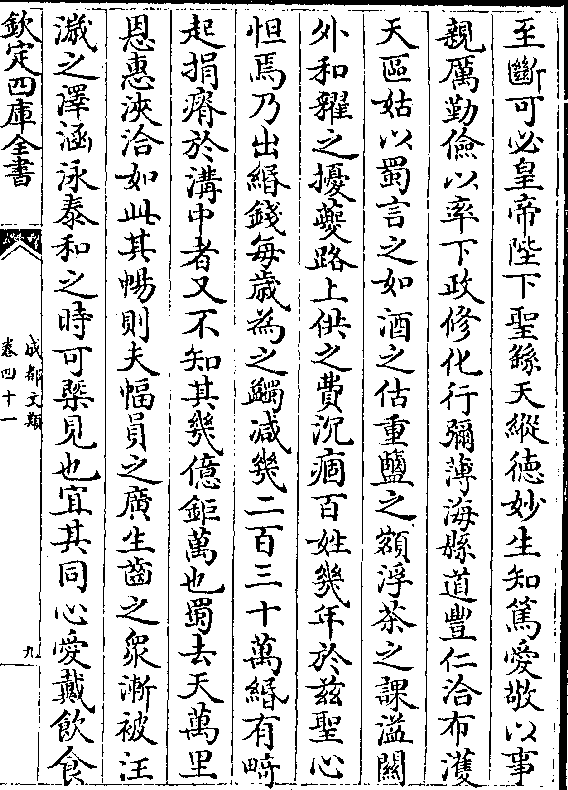 至斷可必皇帝陛下聖繇天縱德妙生知篤愛敬以事
親厲勤儉以率下政修化行彌薄海縣道豐仁洽布濩
天區姑以蜀言之如酒之估重鹽之額浮茶之課溢關
外和糴之擾夔路上供之費沉痼百姓幾年於兹聖心
怛焉乃出緡錢每歲為之蠲減幾二百三十萬緡有畸
起捐瘠於溝中者又不知其幾億鉅萬也蜀去天萬里
恩惠浹洽如此其暢則夫幅員之廣生齒之衆漸被汪
濊之澤涵泳泰和之時可槩見也宜其同心愛戴飲食
欽定四庫全書
成都文類
卷四十一
九